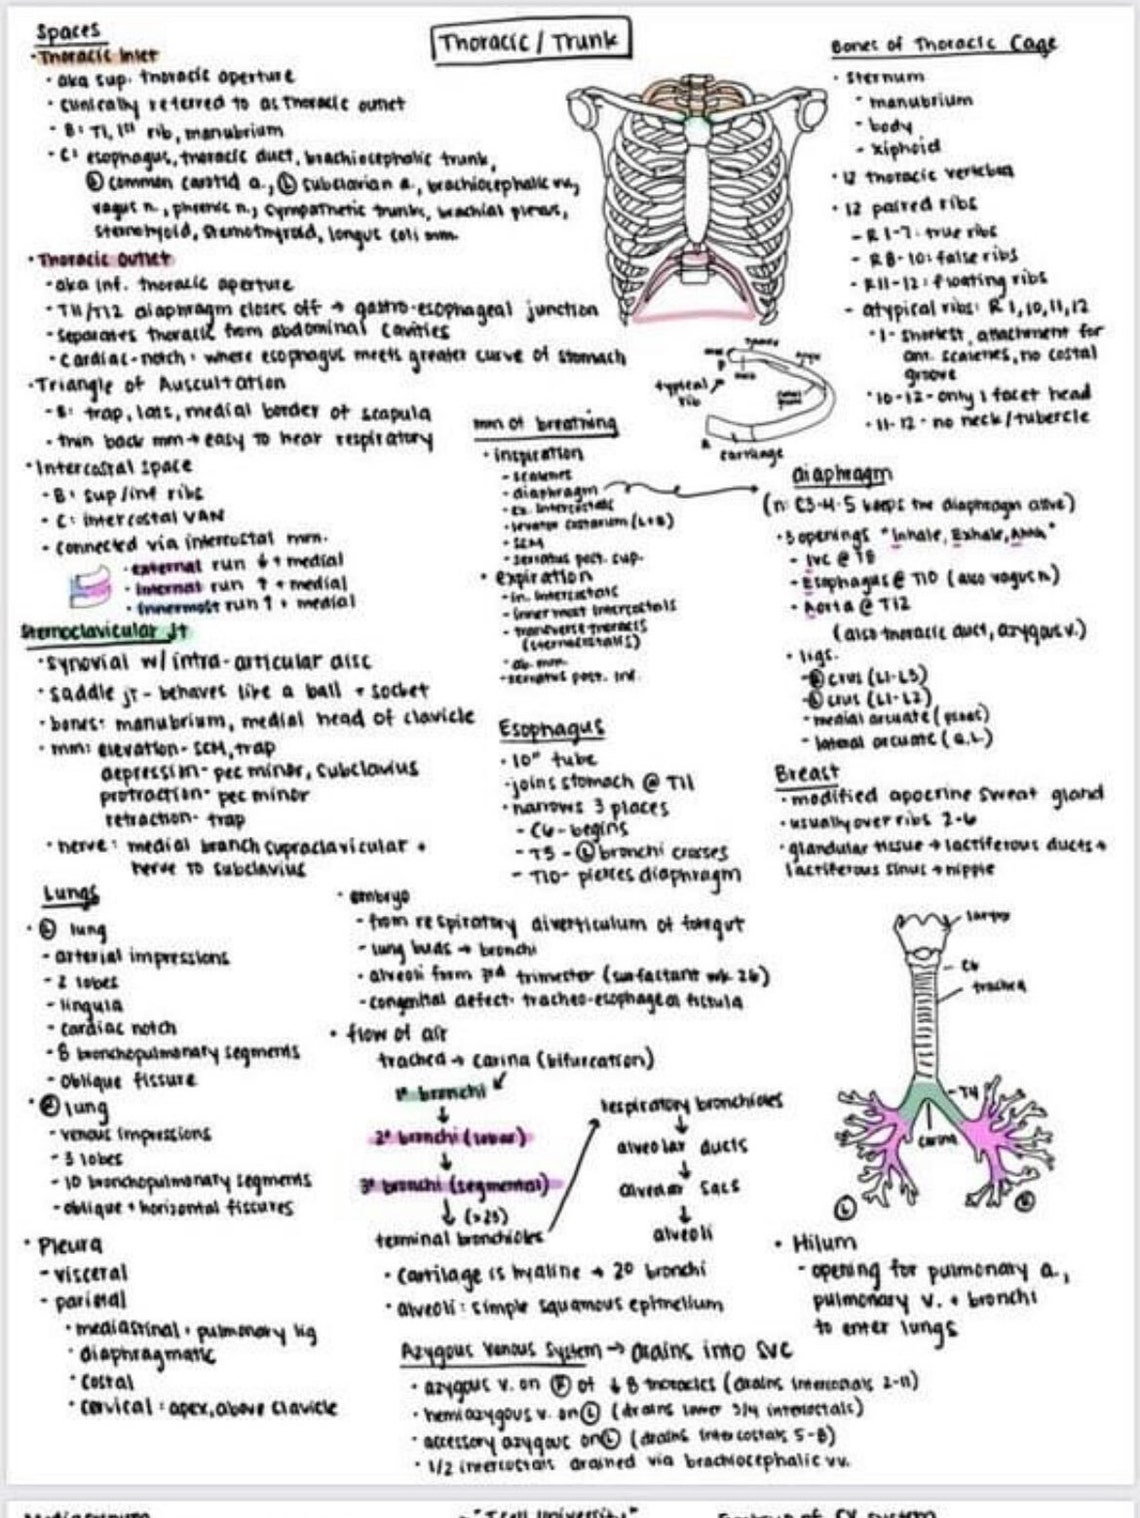 Thoracic / Trunk
Spaces
· Thoracic Inlet
· aka sup. thoracic aperture
· clinically referred to as Thoracic outlet
- B: T1, 1st rib, manubrium
- C: esophagus, thoracic duct, brachiocephalic trunk,
Ⓛ common carotid a., Ⓛ subclavian a., brachiocephalic vv.,
vagus n., phrenic n., sympathetic trunks, brachial plexus,
sternohyoid, sternothyroid, longus coli mm.
· Thoracic Outlet
- aka inf. thoracic aperture
- T11/T12 diaphragm closes off → gastro-esophageal junction
- separates thoracic from abdominal cavities
· cardiac-notch: where esophagus meets greater curve of stomach
· Triangle of Auscultation
- B: trap, lats, medial border of scapula
· thin back mm → easy to hear respiratory
· Intercostal space
- B: sup/inf ribs
- C: intercostal VAN
- connected via intercostal mm.
· external run ↓ + medial
· internal run ↑ + medial
· innermost run ↑ + medial
Sternoclavicular Jt
· synovial w/ intra-articular disc
· saddle jt - behaves like a ball + socket
· bones: manubrium, medial head of clavicle
· mm: elevation- SCM, trap
depression- pec minor, subclavius
protraction- pec minor
retraction- trap
· nerve: medial branch supraclavicular +
nerve to subclavius
typical rib
cartilage
mm of breathing
· inspiration
- scalenes
- diaphragm
- ex. intercostals
- levator costarum (L+B)
- SCM
- serratus post. sup.
· expiration
- in. intercostals
- innermost intercostals
- transverse thoracis
(sternocostalis)
- ab. mm.
- serratus post. inf.
Esophagus
· 10" tube
· joins stomach @ T11
· narrows 3 places
- C6- begins
- T5 - Ⓛ bronchi crosses
- T10- pierces diaphragm
Bones of Thoracic Cage
· sternum
- manubrium
- body
- xiphoid
· 12 thoracic vertebra
· 12 paired ribs
- R 1-7: true ribs
- R8-10: false ribs
- R11-12: floating ribs
- atypical ribs: R 1,10,11,12
· 1- shortest, attachment for
ant. scalenes, no costal
groove
· 10-12- only 1 facet head
· 11-12- no neck/tubercle
diaphragm
(n: C3-4-5 keeps the diaphragm alive)
· 3 openings "Inhale, Exhale, Ahhh"
- IVC @ T8
- Esophagus @ T10 (also vagus n)
- Aorta @ T12
(also thoracic duct, azygous v.)
· ligs.
- Ⓡ crus (L1-L3)
- Ⓛ crus (L1-L2)
- medial arcuate (psoas)
- lateral arcuate (Q.L.)
Breast
· modified apocrine sweat gland
· usually over ribs 2-6
· glandular tissue → lactiferous ducts →
lactiferous sinus → nipple
Lungs
· Ⓛ lung
- arterial impressions
- 2 lobes
- lingula
- cardiac notch
- 8 bronchopulmonary segments
- oblique fissure
· Ⓡ lung
- venous impressions
- 3 lobes
- 10 bronchopulmonary segments
- oblique + horizontal fissures
· Pleura
- visceral
- parietal
· mediastinal + pulmonary lig
· diaphragmatic
· costal
· cervical: apex, above clavicle
· embryo
- from respiratory diverticulum of foregut
- lung buds → bronchi
- alveoli form 3rd trimester (surfactant wk 26)
- congenital defect: tracheo-esophageal fistula
· flow of air
trachea → carina (bifurcation)
1° bronchi
2° bronchi (lobar)
3° bronchi (segmental)
(>25)
terminal bronchioles
respiratory bronchioles
alveolar ducts
alveolar sacs
alveoli
· cartilage is hyaline → 2° bronchi
· alveoli: simple squamous epithelium
larynx
C6
trachea
T4
carina
Ⓛ
Ⓡ
· Hilum
- opening for pulmonary a.,
pulmonary v. + bronchi
to enter lungs
Azygous Venous System → drains into SVC
· azygous v. on Ⓡ of ↓ 8 thoracics (drains intercostals 2-11)
· hemiazygous v. on Ⓛ (drains lower 3/4 intercostals)
· accessory azygous on Ⓛ (drains intercostals 5-8)
· 1/2 intercostals drained via brachiocephalic vv.